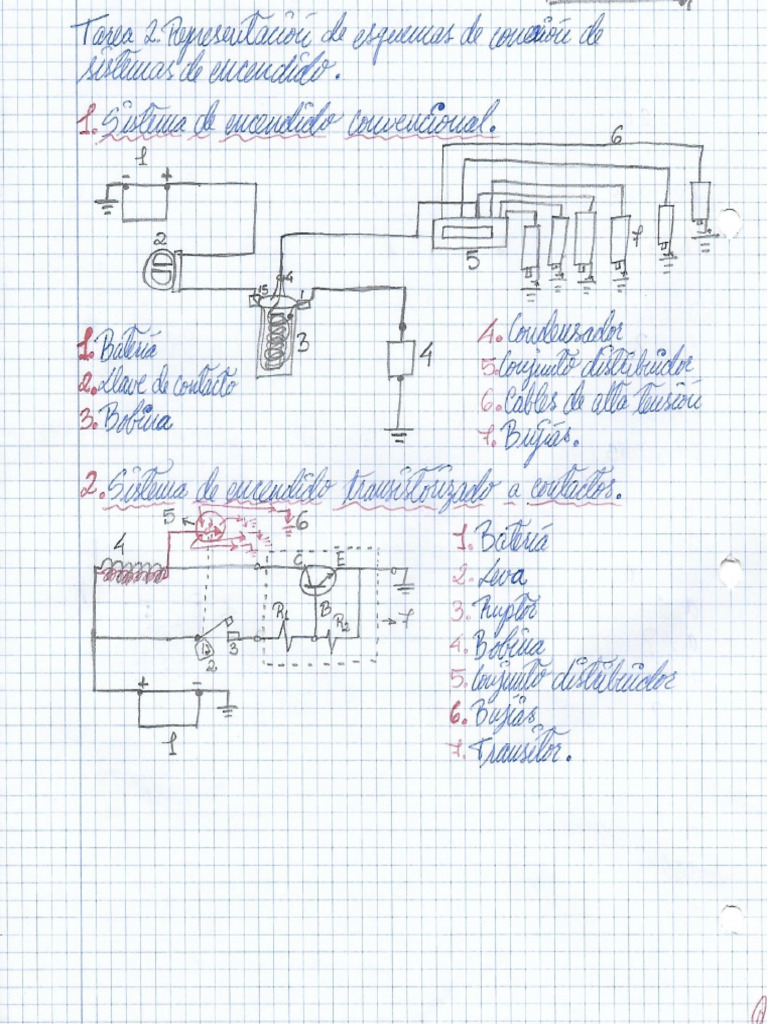 Tarea 2. Representación de esquemas de conexión de
sistemas de encendido.
1. Sistema de encendido convencional.
1
- +
6
2
5
7
15 4 1
3
4
1. Batería
2. Llave de contacto
3. Bobina
4. Condensador
5. Conjunto distribuidor
6. Cables de alta tensión
7. Bujías.
2. Sistema de encendido transistorizado a contactos.
5
6
4
C E
B
R1
R2
7
3
2
+ -
1
1. Batería
2. Leva
3. Ruptor
4. Bobina
5. Conjunto distribuidor
6. Bujías
7. Transitor.